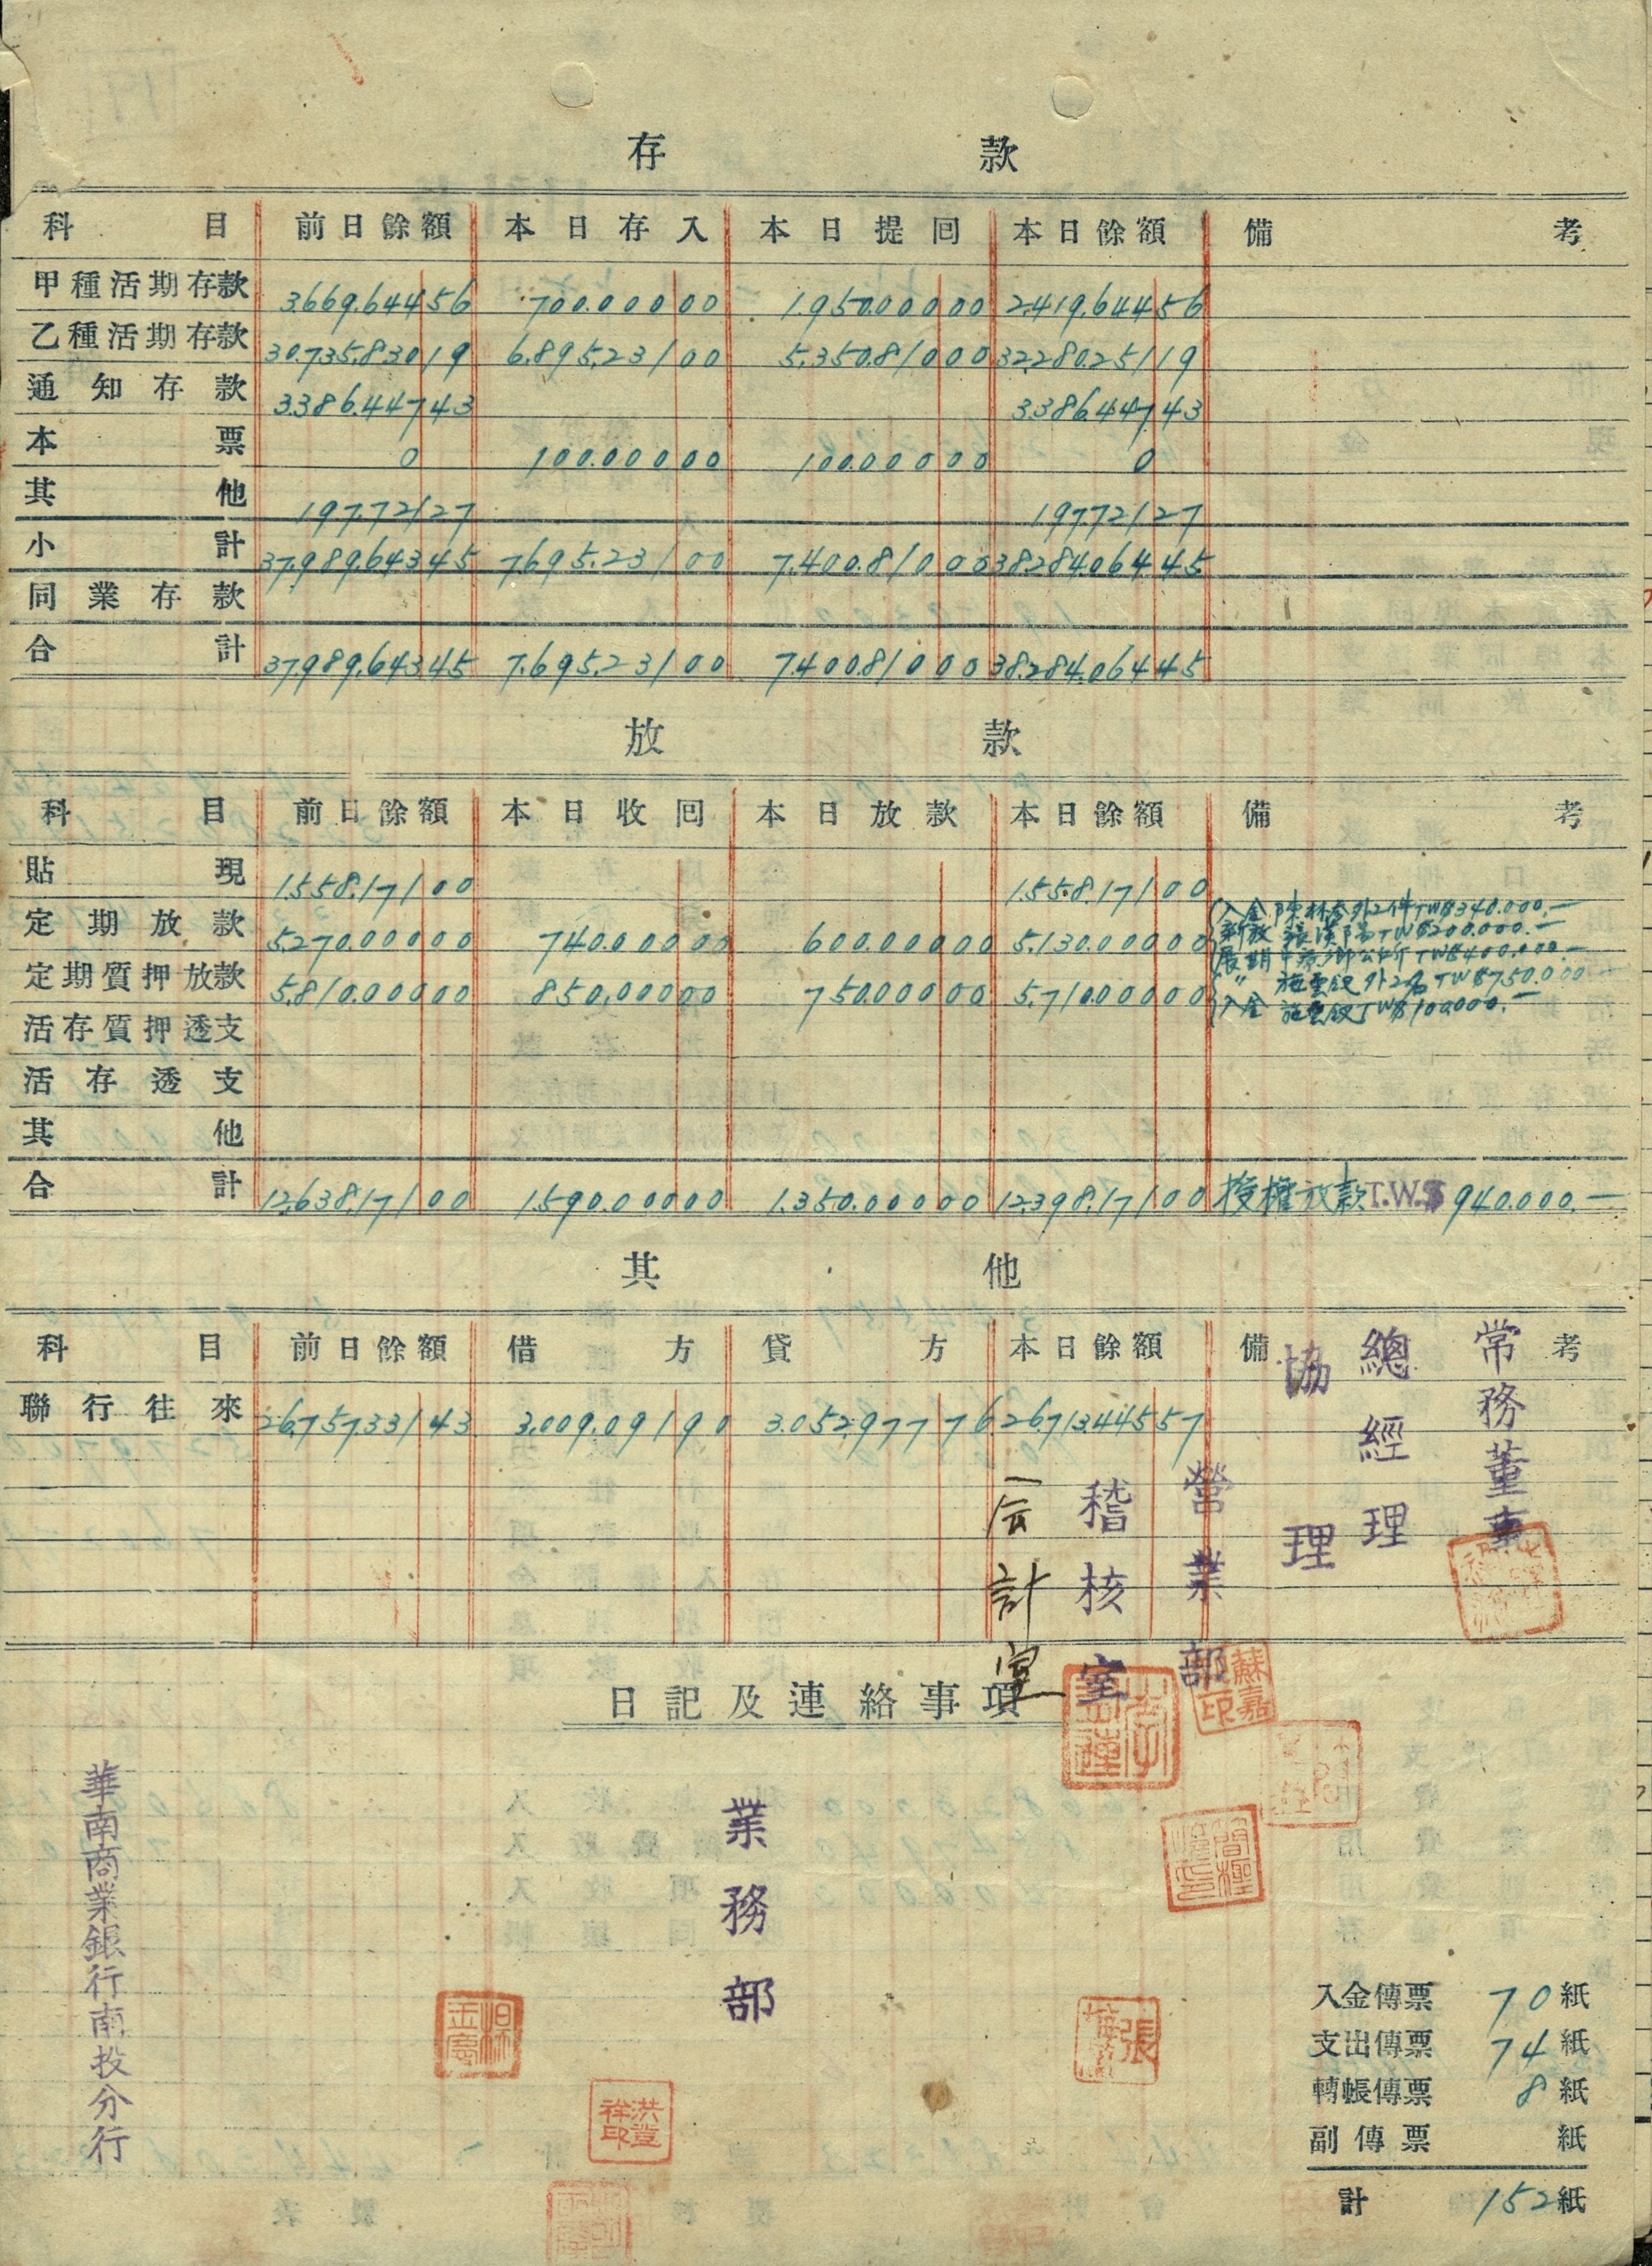 存款
科目 前日餘額 本日存入 本日提回 本日餘額 備考
甲種活期存款 3.669.644 56 700.000 00 1.950.000 00 2.419.644 56
乙種活期存款 30.735.830 19 6.895.231 00 5.350.810 00 32.280.251 19
通知存款 3.386.447 43 3.386.447 43
本票 0 100.000 00 100.000 00 0
其他 197.721 27 197.721 27
小計 37.989.643 45 7.695.231 00 7.400.810 00 38.284.064 45
同業存款
合計 37.989.643 45 7.695.231 00 7.400.810 00 38.284.064 45
放款
科目 前日餘額 本日收回 本日放款 本日餘額 備考
貼現 1.558.171 00 1.558.171 00
入金 陳林 外2件 TW$340.000.—
定期放款 5.270.000 00 740.000 00 600.000 00 5.130.000 00 新放 張漢 TW$200.000.—
展期 TW$400.000.—
定期質押放款 5.810.000 00 850.000 00 750.000 00 5.710.000 00 〃 施雲釵 外2名 TW$750.000
入金 施雲釵 TW$100.000.—
活存質押透支
活存透支
其他
合計 12.638.171 00 1.590.000 00 1.350.000 00 12.398.171 00 授權放款 T.W.$ 940.000.—
其他
科目 前日餘額 借方 貸方 本日餘額 備考
聯行往來 26.757.331 43 3.009.091 90 3.052.977 76 26.713.445 57
常務董事
總經理
協理
營業部
稽核室
会計室
日記及連絡事項
業務部
華南商業銀行南投分行
洪登祥印
入金傳票 70 紙
支出傳票 74 紙
轉帳傳票 8 紙
副傳票 紙
計 152 紙